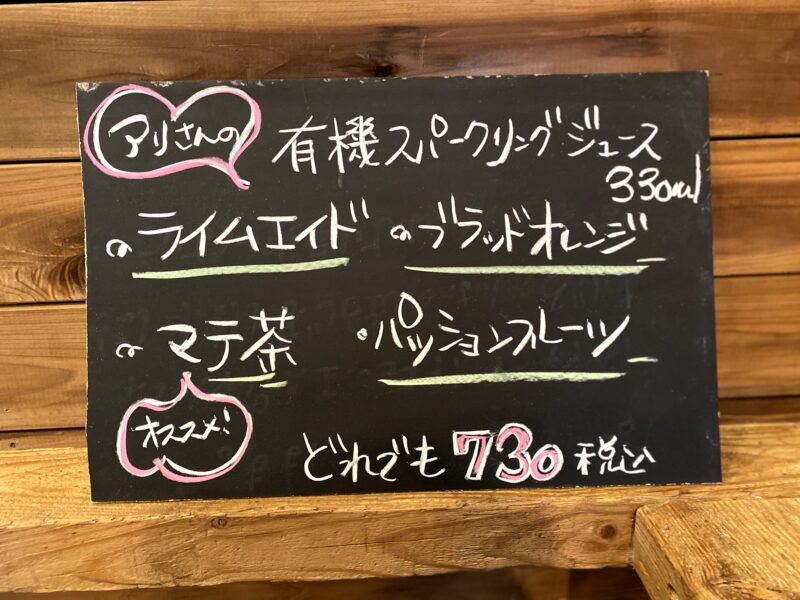 アリさんの
有機スパークリングジュース
330ml
ライムエイド
ブラッドオレンジ
マテ茶
パッションフルーツ
オススメ!
どれでも 730 税込